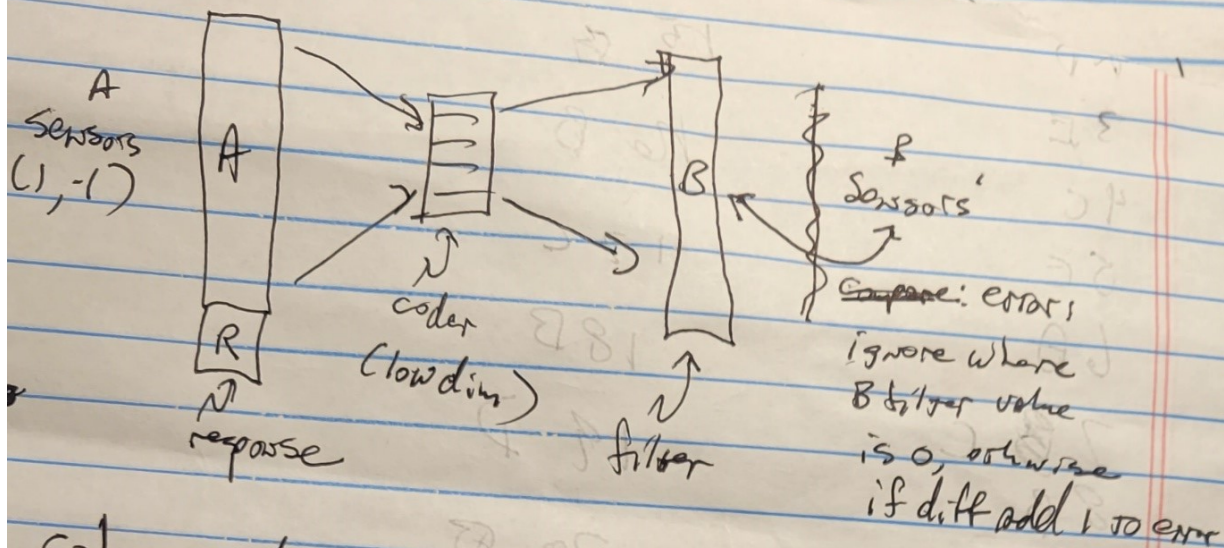 A
Sensors
(1, -1)
A
R
response
coder
(low dim)
B
filter
B
Sensors'
Compare: errors
ignore where
B filter value
is 0, otherwise
if diff add 1 to error